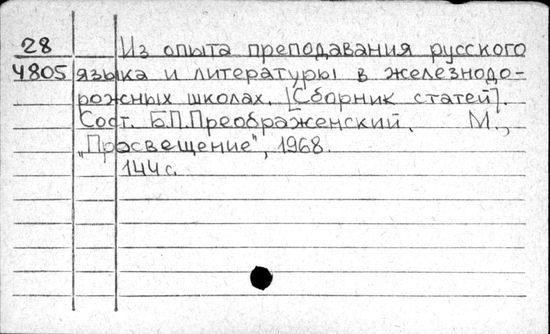 28 Из опыта преподавания русского
4805 языка и литературы в железнодо-
рожных школах. [Сборник статей].
Сост. Б.П.Преображенский. М.,
„Просвещение", 1968.
144 с.